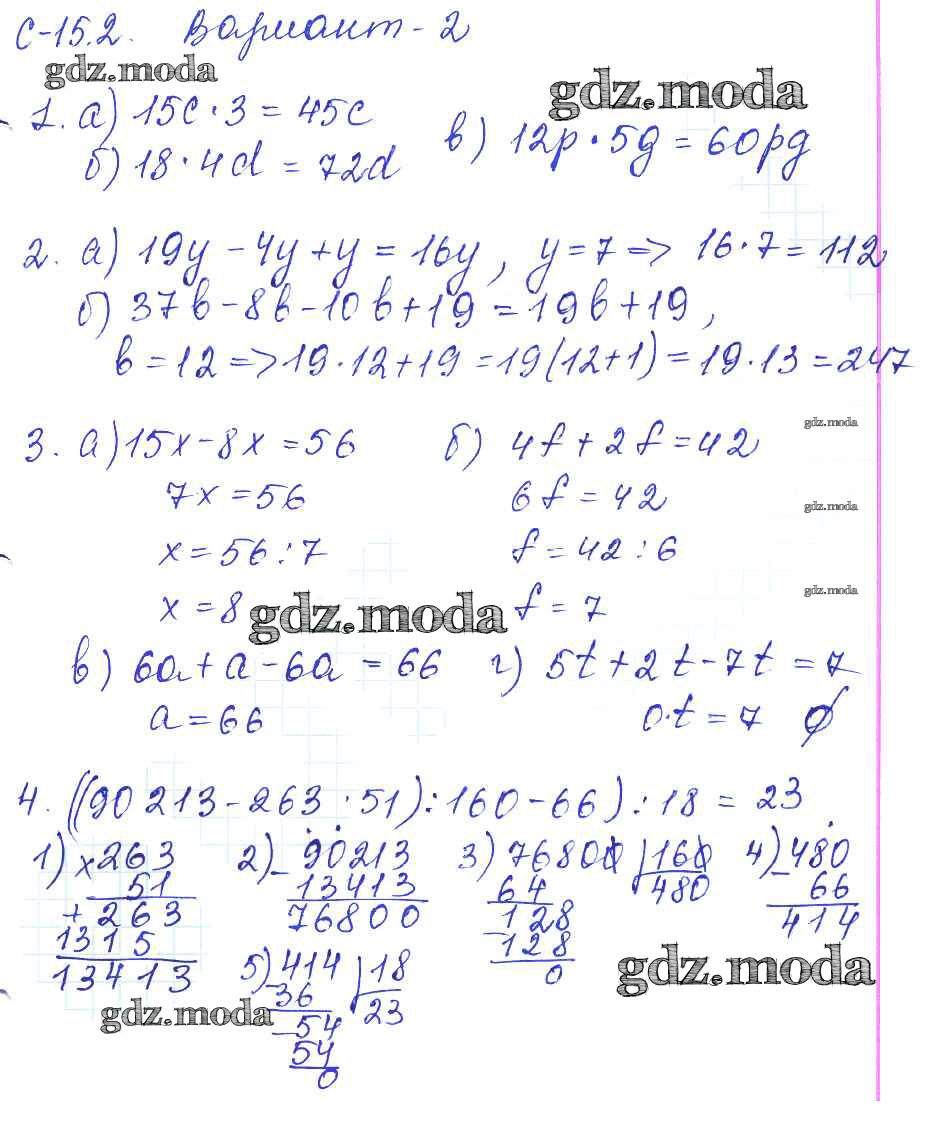 С-15.2. Вариант-2
gdz.moda
gdz.moda
1. а) 15c·3 = 45c
б) 18·4d = 72d
в) 12p·5g = 60pg
2. а) 19y - 4y + y = 16y, y = 7 => 16·7 = 112
б) 37b - 8b - 10b + 19 = 19b + 19,
b = 12 => 19·12 + 19 = 19(12+1) = 19·13 = 247
gdz.moda
3. а) 15x - 8x = 56 б) 4f + 2f = 42
7x = 56 6f = 42
gdz.moda
x = 56:7 f = 42:6
gdz.moda
x = 8 f = 7
gdz.moda
в) 6a + a - 6a = 66 г) 5t + 2t - 7t = 7
a = 66 0·t = 7 ∅
4. ((90 213 - 263·51):160 - 66):18 = 23.
1) ×263 2) -90213 3) 76800 |160 4) -480
51 13413 64 480 66
+263 76800 -128 414
1315 128
13413 0
5) -414 |18
36 23
-54
54
0
gdz.moda
gdz.moda